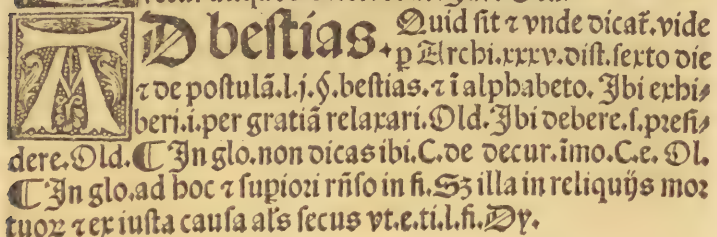 AD bestias. Quid sit ⁊ vnde dicat̃. vide
p Archi.xxxv.dist.sexto die
⁊ de postulã.l.j.§.bestias.⁊ ĩ alphabeto. Ibi exhi⸗
beri.i.per gratiã relaxari.Old.Ibi debere.s.presi⸗
dere.Old.¶ In glo.non dicas ibi.C.de decur.ĩmo.C.e. Ol.
¶ In glo.ad hoc ⁊ supiori rñso in fi.Sꝫ illa in reliquijs moꝛ
tuoꝝ ⁊ ex iusta causa al's secus vt.e.ti.l.fi.Dy.